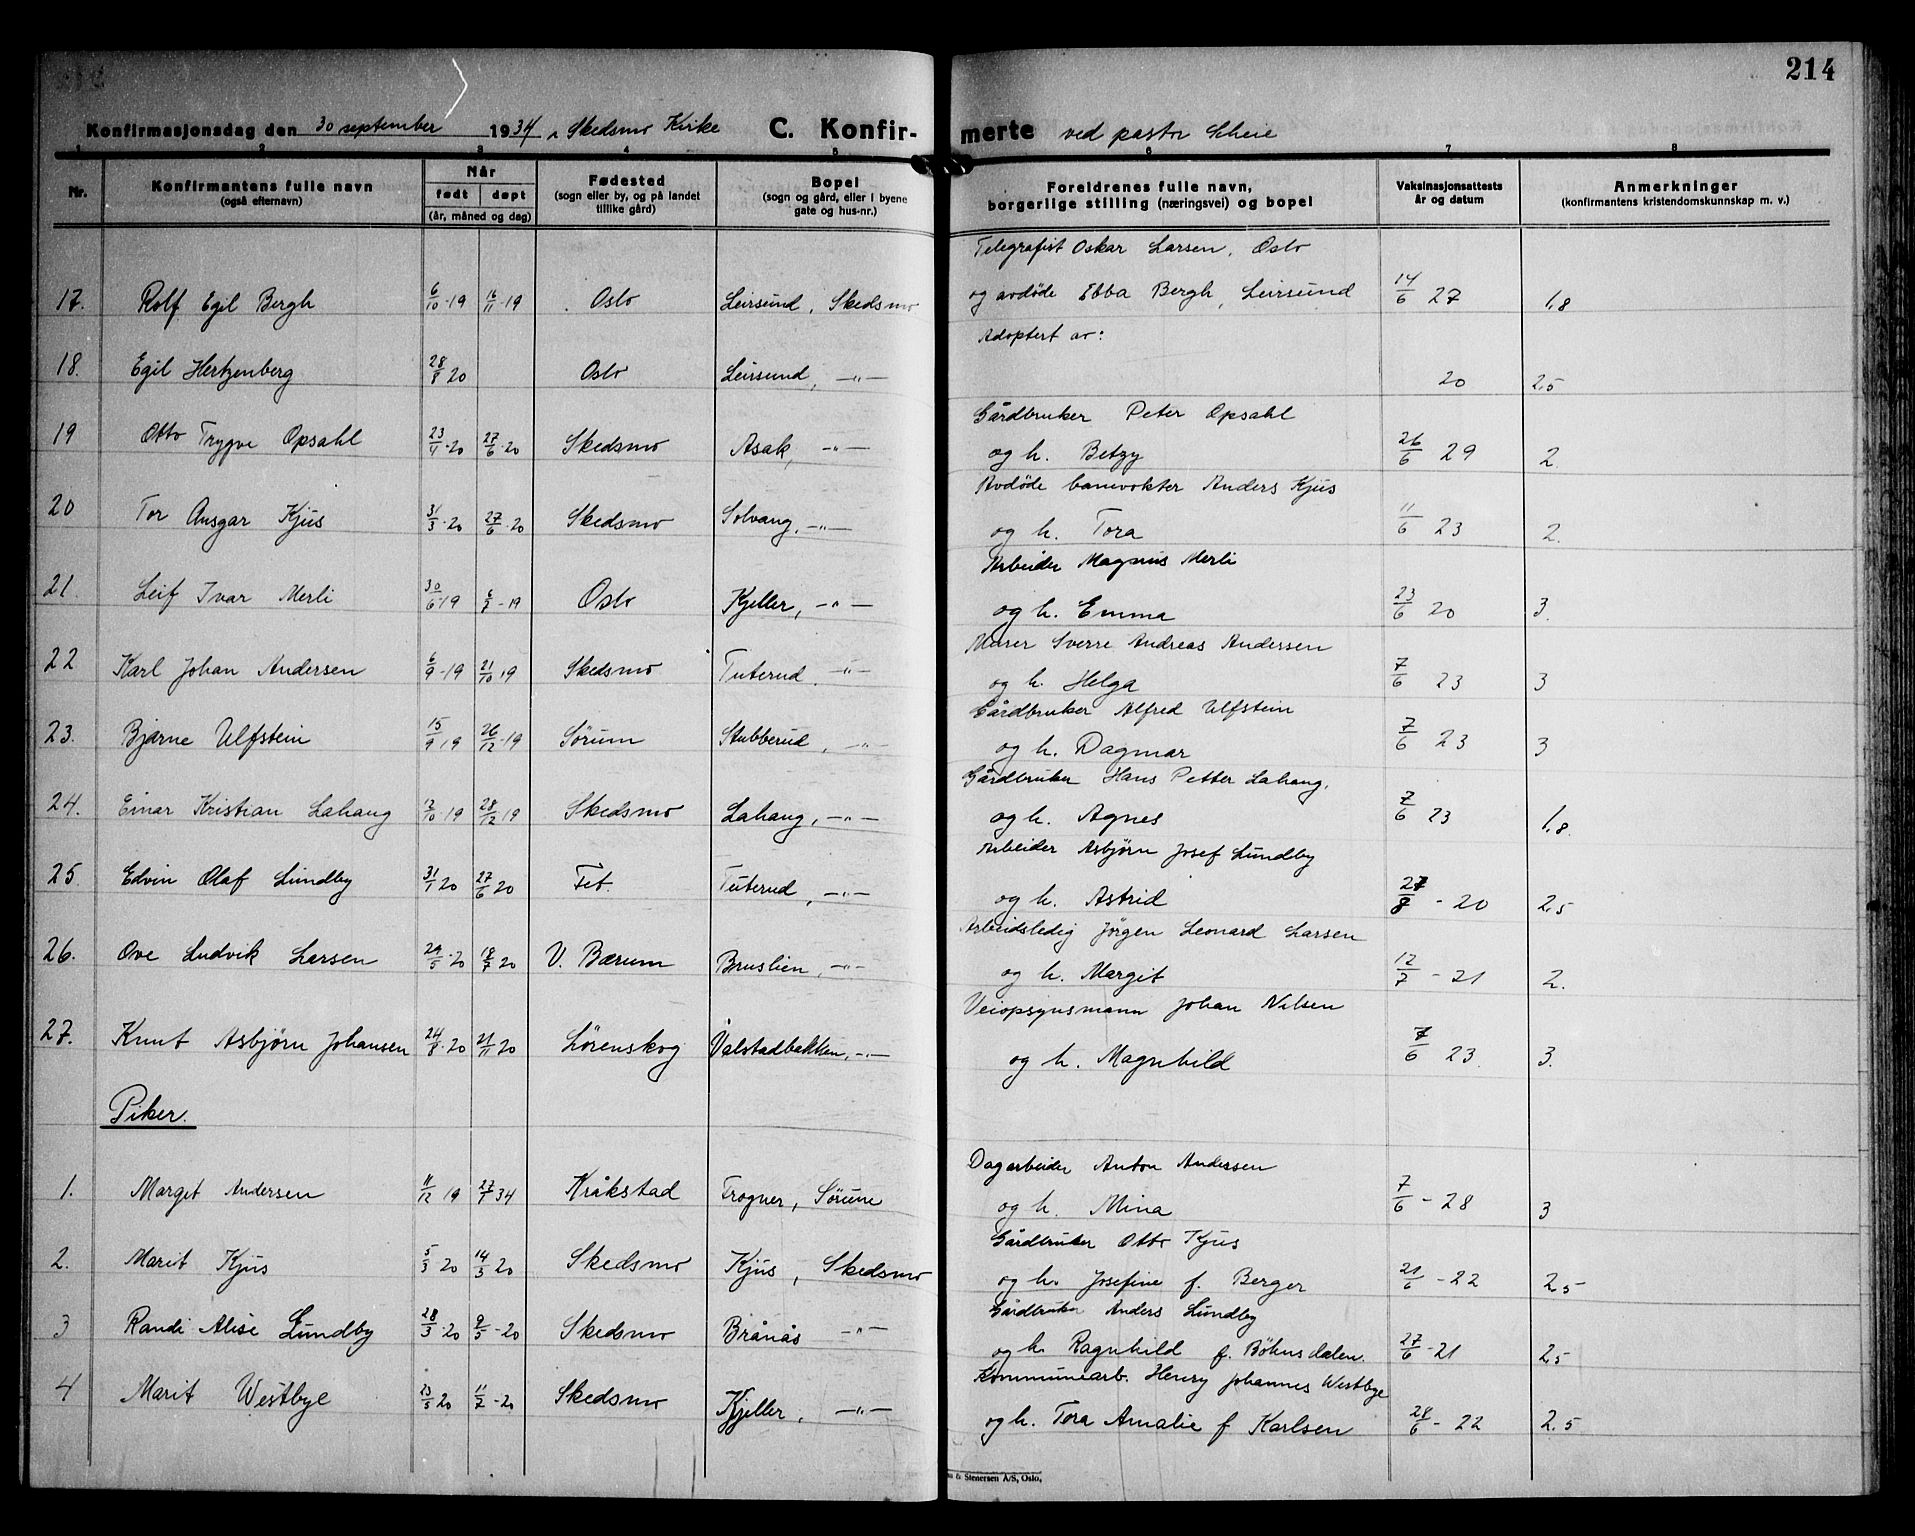 214
Konfirmasjonsdag den 30 september 1934 i Skedsmo Kirke C. Konfir- merte ved pastor Scheie
1 2 3 4 5 6 7 8
Nr. Konfirmantens fulle navn (også efternavn) Når født døpt (år, måned og dag) Fødested (sogn eller by, og på landet tillike gård) Bopel (sogn og gård, eller i byene gate og hus-nr.) Foreldrenes fulle navn, borgerlige stilling (næringsvei) og bopel Vaksinasjonsattests år og datum Anmerkninger (konfirmantens kristendomskunnskap m. v.)
Telegrafist Oskar Larsen, Oslo
17. Rolf Egil Bergh 6/10-19 16/11-19 Oslo Leirsund, Skedsmo og avdøde Ebba Bergh, Leirsund 14/6 27 1,8
Adoptert av:
18. Egil Hertzenberg 28/8 20 Oslo Leirsund, -"- 20 2,5
Gårdbruker Peter Opsahl
19 Otto Trygve Opsahl 23/4-20 27/6-20 Skedsmo Asak, -"- og h. Betzy 26/6 29 2.
Avdøde banevokter Anders Kjus
20 Tor Ansgar Kjus 31/3-20 27/6-20 Skedsmo Solvang, -"- og h. Tora 11/6 23 2.
Arbeider Magnus Merli
21. Leif Ivar Merli 30/6-19 6/7-19 Oslo Kjeller, -"- og h. Emma 23/6 20 3.
Murer Sverre Andreas Andersen
22 Karl Johan Andersen 6/9-19 21/10 19 Skedsmo Tuterud -"- og h. Helga 7/6 23 3
Gårdbruker Alfred Ulfstein
23. Bjarne Ulfstein 15/9 19 26/12-19 Sørum Stubberud, -"- og h. Dagmar 7/6 23 3
Gårdbruker Hans Petter Lahaug,
24. Einar Kristian Lahaug 12/10-19 28/12 19 Skedsmo Lahaug, -"- og h. Agnes 7/6 23 1,8.
Arbeider Asbjørn Josef Lundby
25. Edvin Olaf Lundby 31/1 20 27/6 20 Fet. Tuterud, -"- og h. Astrid 27/8 - 20 2,5
Arbeidsledig Jørgen Leonard Larsen
26. Ove Ludvik Larsen 29/5-20 18/7 20 V. Bærum Bruslien, -"- og h. Margit 12/7 - 21 2.
Veiopsynsmann Johan Nilsen
27. Knut Asbjørn Johansen 24/8-20 21/11 20 Lørenskog Valstadbakken, -"- og h. Magnhild 7/6 23 3.
Piker.
Dagarbeider Anton Andersen
1. Margit Andersen 11/12 19 27/1 34 Kråkstad Frogner, Sørum og h. Mina 7/6 - 28 3
Gårdbruker Otto Kjus
2. Marit Kjus 5/3 20 14/3 20 Skedsmo Kjus, Skedsmo og h. Josefine f. Berger 21/6 - 22 2,5
Gårdbruker Anders Lundby
3 Randi Alise Lundby 28/3-20 9/5-20 Skedsmo Brånås -"- og h. Ragnhild f. Böhnsdalen. 27/6-21 2,5
Kommunearb. Henry Johannes Westbye
4 Marit Westbye 23/5 20 11/7-20 Skedsmo Kjeller, -"- og h. Tora Amalie f Karlsen 28/6 - 22 2,5
& Stenersen A/S, Oslo,